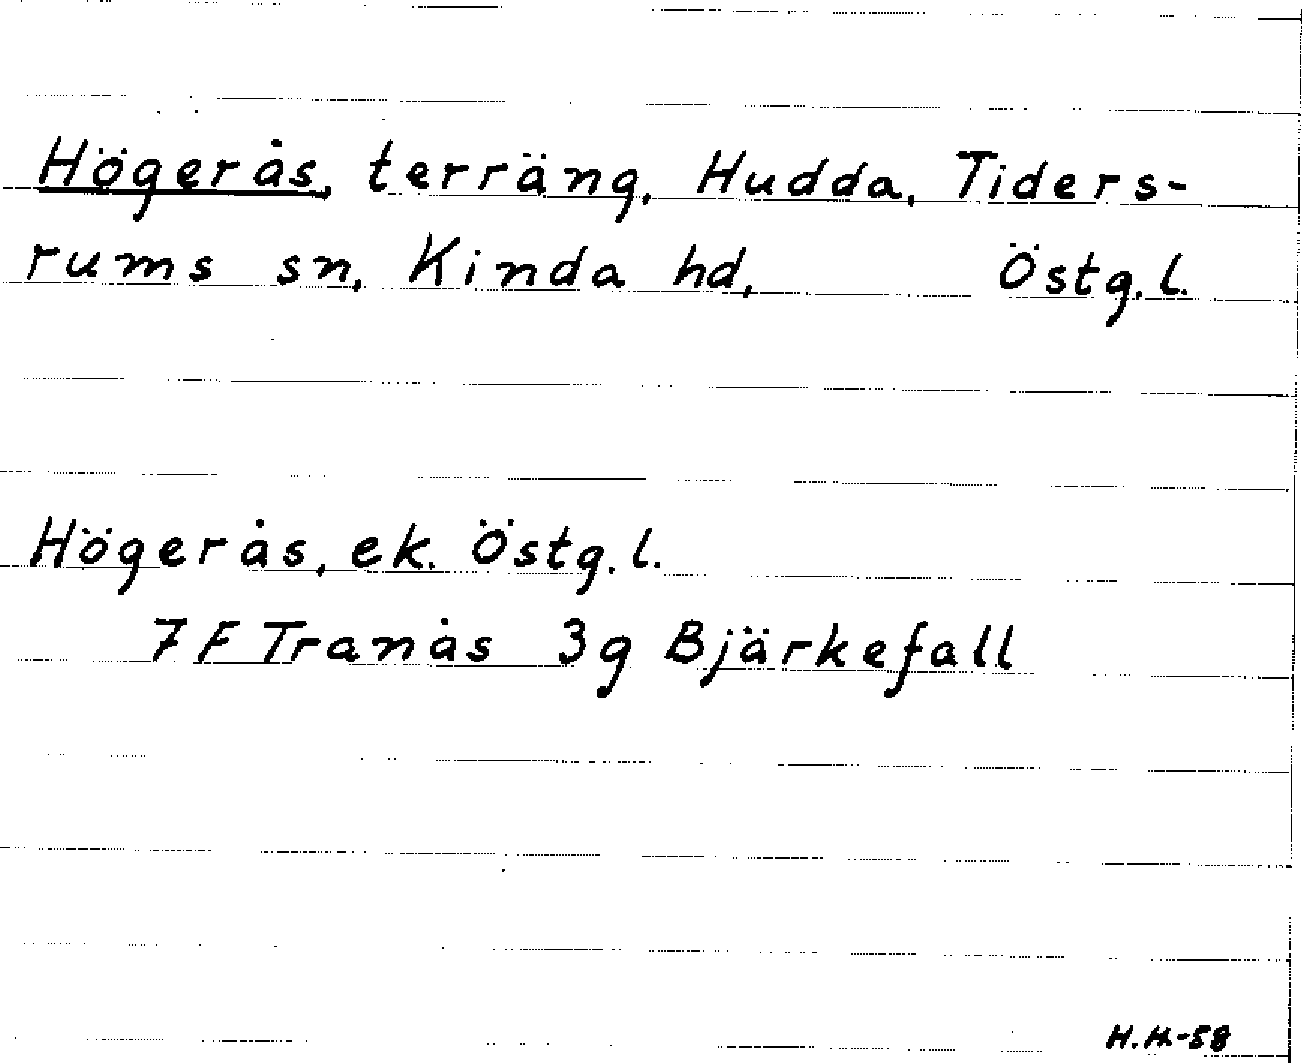 Högerås, terräng, Hudda, Tiders-
rums sn, Kinda hd, Östg. l.
Högerås, ek. Östg. l.
7 F Tranås 3g Bjärkefall
H.H.-58